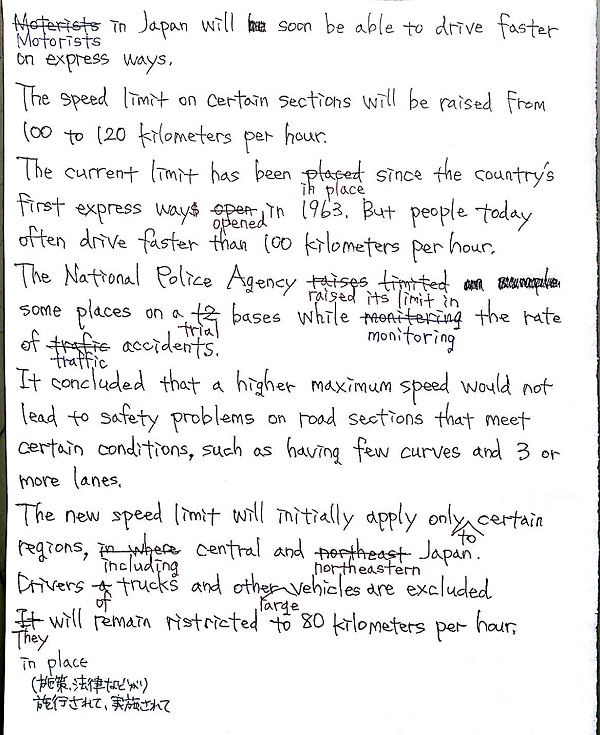 Moterists in Japan will soon be able to drive faster
Motorists
on express ways.
The speed limit on certain sections will be raised from
100 to 120 kilometers per hour.
The current limit has been placed since the country's
in place
first express ways open in 1963. But people today
opened
often drive faster than 100 kilometers per hour.
The National Police Agency raises limited
raised its limit in
some places on a t2 bases while monitering the rate
trial
monitoring
of trafic accidents.
traffic
It concluded that a higher maximum speed would not
lead to safety problems on road sections that meet
certain conditions, such as having few curves and 3 or
more lanes.
The new speed limit will initially apply only certain
to
regions, in where central and northeast Japan.
including northeastern
Drivers trucks and other vehicles are excluded
of large
It will remain ristricted to 80 kilometers per hour.
They
in place
(施策、法律などが)
施行されて、実施されて